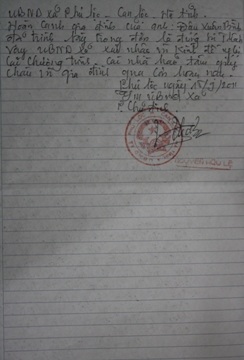 UBND xã Phú Lộc - Can Lộc - Hà Tĩnh.
Hoàn cảnh gia đình của anh Đậu Xuân Bình
đã trình bày trong đơn là đúng sự thật
Vậy UBND xã xác nhận và kính đề nghị
các chương trình, các nhà hảo tâm giúp
cháu và gia đình qua cơn hoạn nạn.
Phú Lộc ngày 15/9/2011
T/M UBND xã
P. Chủ tịch